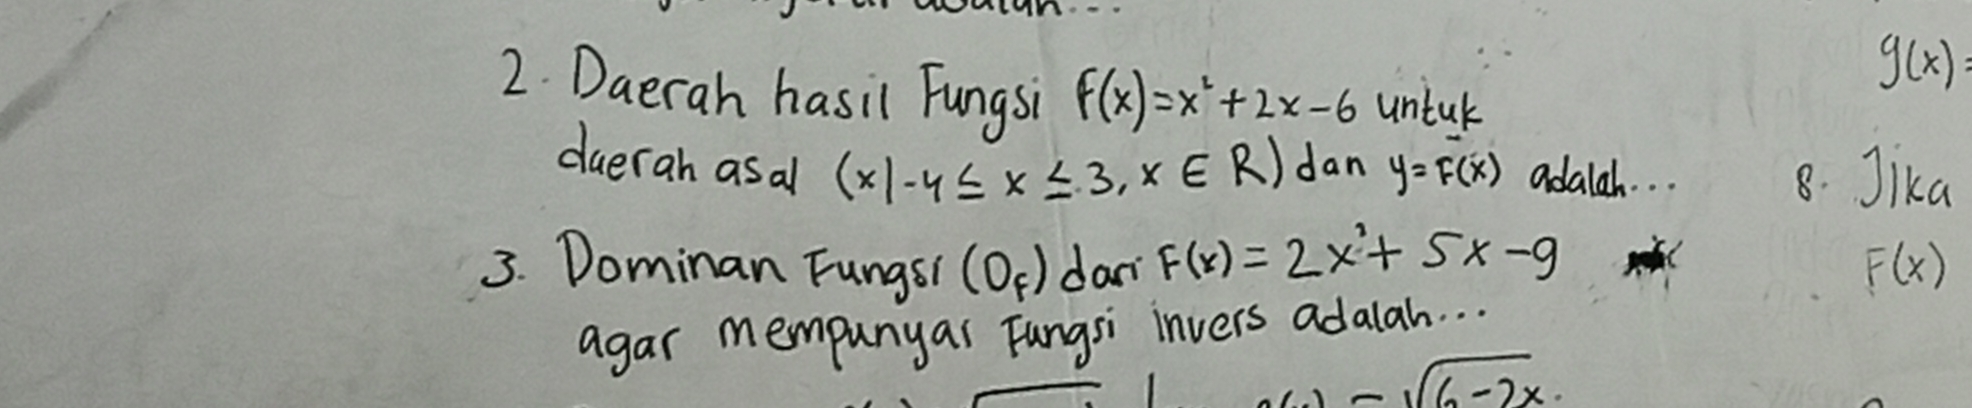 2. Daerah hasil Fungsi f(x)=x²+2x-6 untuk
daerah asal (x|-4 ≤ x ≤ 3, x ∈ R) dan y=F(x) adalah...
3. Dominan Fungsi (Df) dari F(x) = 2x²+ 5x-9
agar mempunyai Fungsi invers adalah...
√6-2x.
g(x)=
8. Jika
F(x)